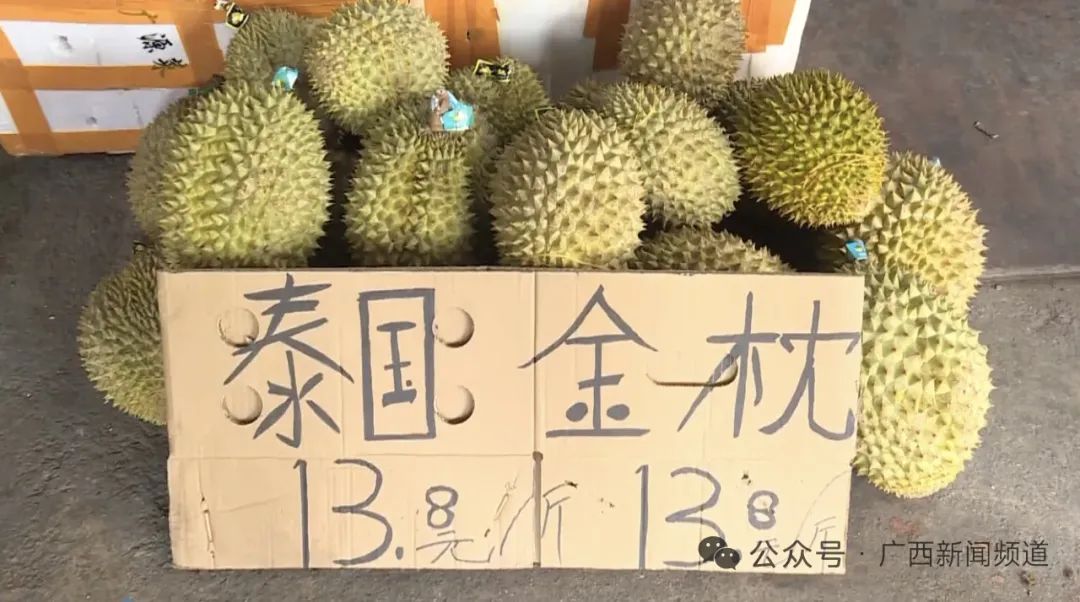 泰国 金枕
13.8元/斤 138元/斤
公众号·广西新闻频道